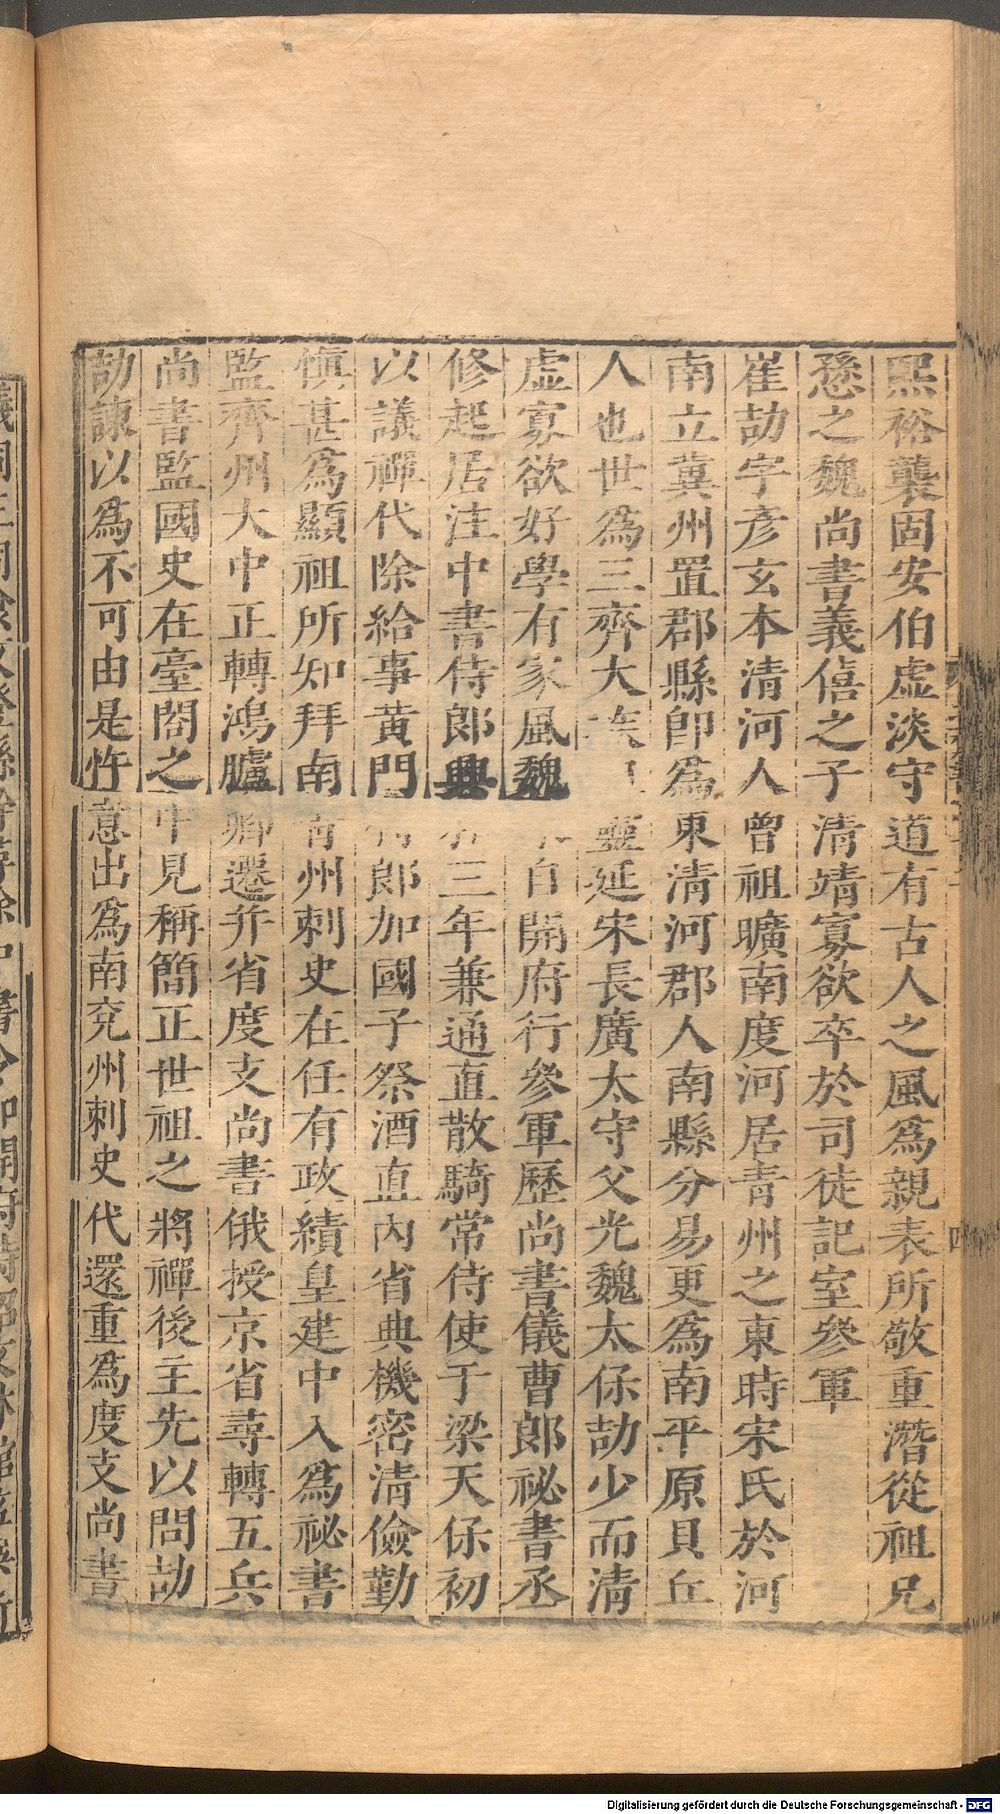 熙裕襲固安伯虛淡守道有古人之風爲親表所敬重潛從祖兄
愻之魏尚書義僖之子清靖寡欲卒於司徒記室參軍
崔劼字彥玄本清河人曾祖曠南度河居青州之東時宋氏於河
南立冀州置郡縣即爲東清河郡人南縣分易更爲南平原貝丘
人也世爲三齊大族靈延宋長廣太守父光魏太保劼少而清
虛寡欲好學有家風魏自開府行參軍歷尚書儀曹郎祕書丞
修起居注中書侍郎興三年兼通直散騎常侍使于梁天保初
以議禪代除給事黃門郎加國子祭酒直內省典機密清儉勤
慎甚爲顯祖所知拜南州刺史在任有政績皇建中入爲祕書
監齊州大中正轉鴻臚卿遷并省度支尚書俄授京省尋轉五兵
尚書監國史在臺閣之中見稱簡正世祖之將禪後主先以問劼
劼諫以爲不可由是忤意出爲南兗州刺史代還重爲度支尚書
四
Digitalisierung gefördert durch die Deutsche Forschungsgemeinschaft - DFG